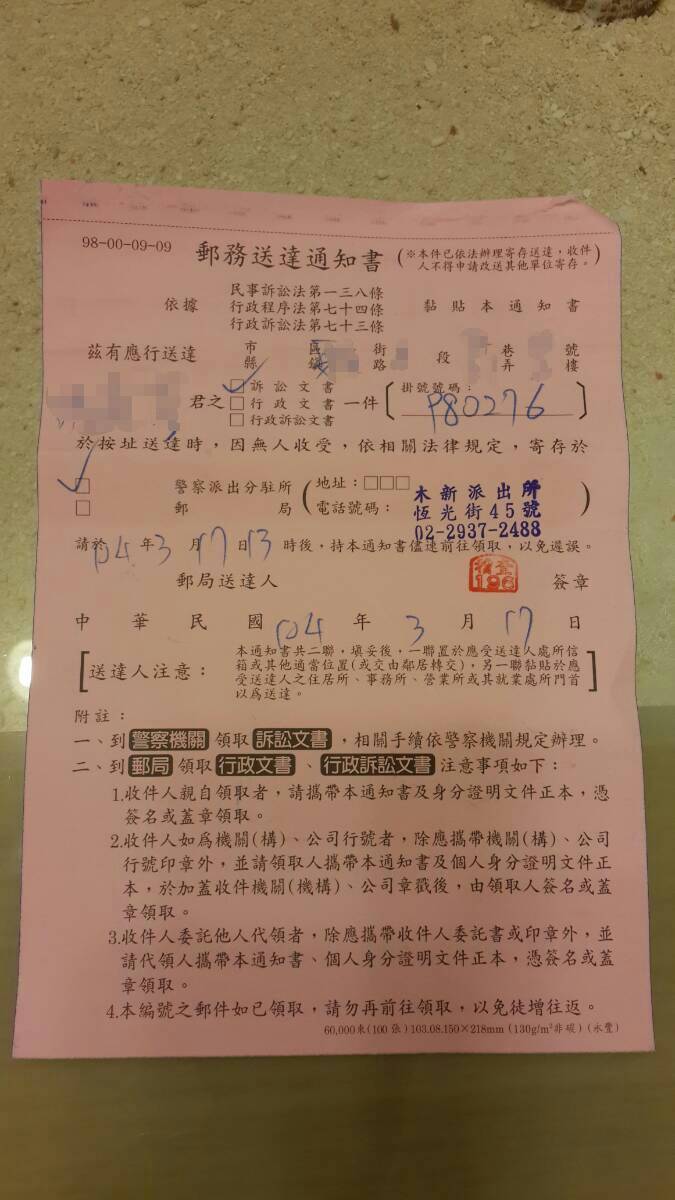 98-00-09-09
郵務送達通知書
(※本件已依法辦理寄存送達，收件
人不得申請改送其他單位寄存。)
民事訴訟法第一三八條
依據 行政程序法第七十四條 黏貼本通知書
行政訴訟法第七十三條
茲有應行送達 市縣 區鎮 街路 段 巷弄 號樓
君之 訴訟文書 一件 (掛號號碼：P80276)
行政文書
行政訴訟文書
於按址送達時，因無人收受，依相關法律規定，寄存於
警察派出分駐所 (地址：□□□ 木新派出所
恆光街45號
郵局 電話號碼： 02-2937-2488)
請於104年3月17日13時後，持本通知書儘速前往領取，以免遲誤。
郵局送達人 簽章
中華民國104年3月17日
[送達人注意：
本通知書共二聯，填妥後，一聯置於應受送達人處所信
箱或其他適當位置(或交由鄰居轉交)，另一聯黏貼於應
受送達人之住居所、事務所、營業所或其就業處所門首
以為送達。]
附註：
一、到 警察機關 領取 訴訟文書 ，相關手續依警察機關規定辦理。
二、到 郵局 領取 行政文書 、 行政訴訟文書 注意事項如下：
1.收件人親自領取者，請攜帶本通知書及身分證明文件正本，憑
簽名或蓋章領取。
2.收件人如為機關(構)、公司行號者，除應攜帶機關(構)、公司
行號印章外，並請領取人攜帶本通知書及個人身分證明文件正
本，於加蓋收件機關(機構)、公司章戳後，由領取人簽名或蓋
章領取。
3.收件人委託他人代領者，除應攜帶收件人委託書或印章外，並
請代領人攜帶本通知書、個人身分證明文件正本，憑簽名或蓋
章領取。
4.本編號之郵件如已領取，請勿再前往領取，以免徒增往返。
60,000束(100張)103.08.150×218mm (130g/m²非碳) (永豐)